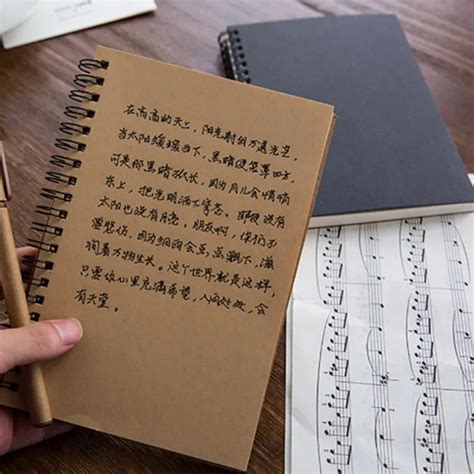 在高高的天上，阳光射出万道光芒，
当太阳缓缓西下，黑暗便笼罩四方，
可是那黑暗不长，因为月儿会悄悄
东上，把光明洒下穹苍。即使没有
太阳也没有月亮，朋友啊，你们不
要悲伤，因为细雨会点点飘下，滋
润着万物生长。这个世界就是这样，
只要你心里充满希望，人间处处，会
有天堂。